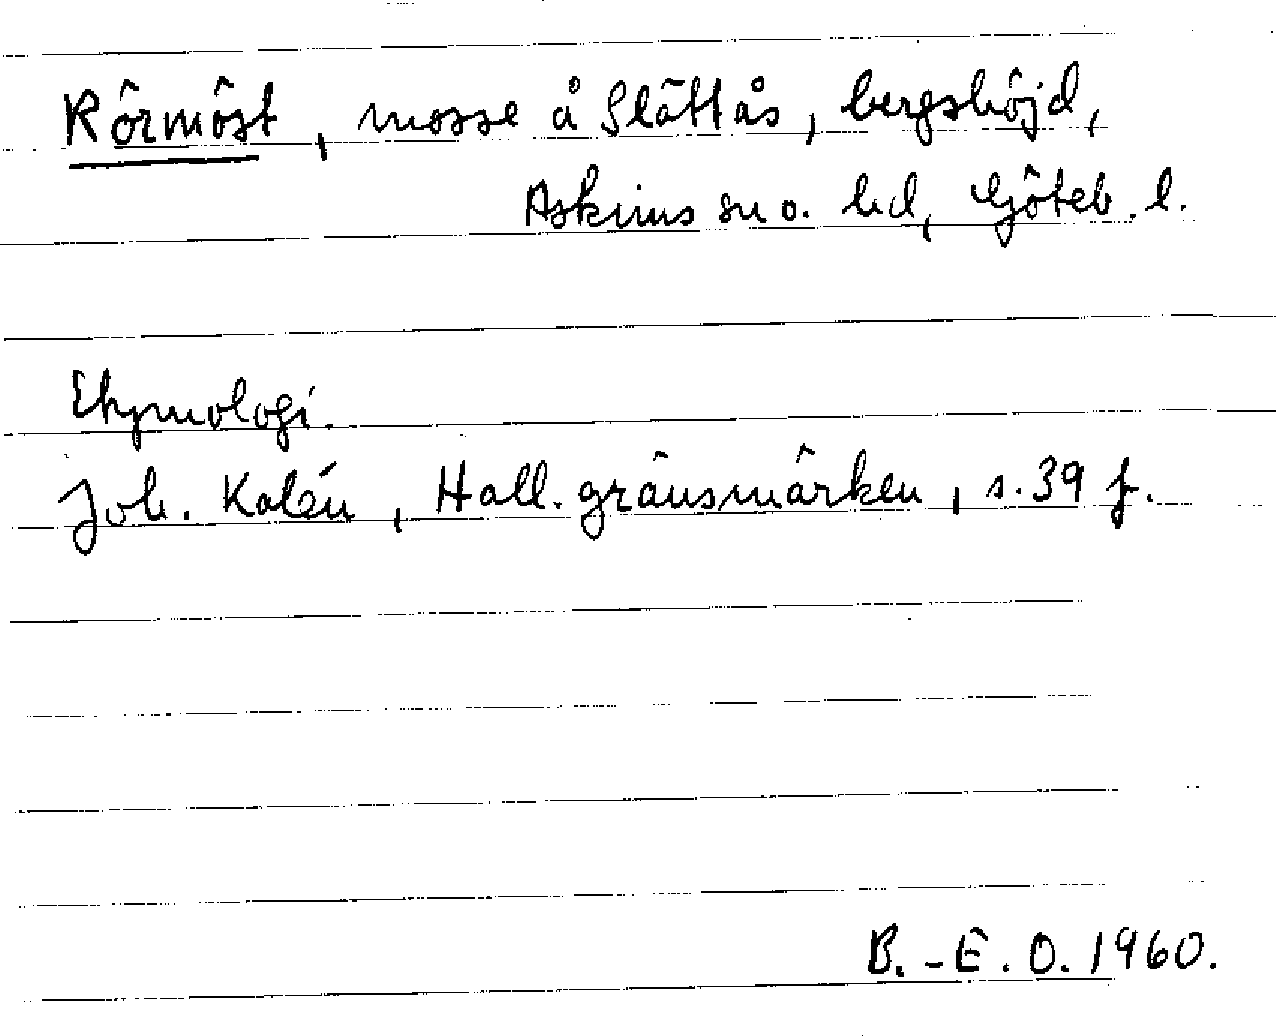 Rörmöst, mosse å Slättås, bergshöjd,
Askims sn o. hd, Göteb. l.
Etymologi.
Joh. Kalén, Hall. gränsmärken, s. 39 f.
B.-E. O. 1960.